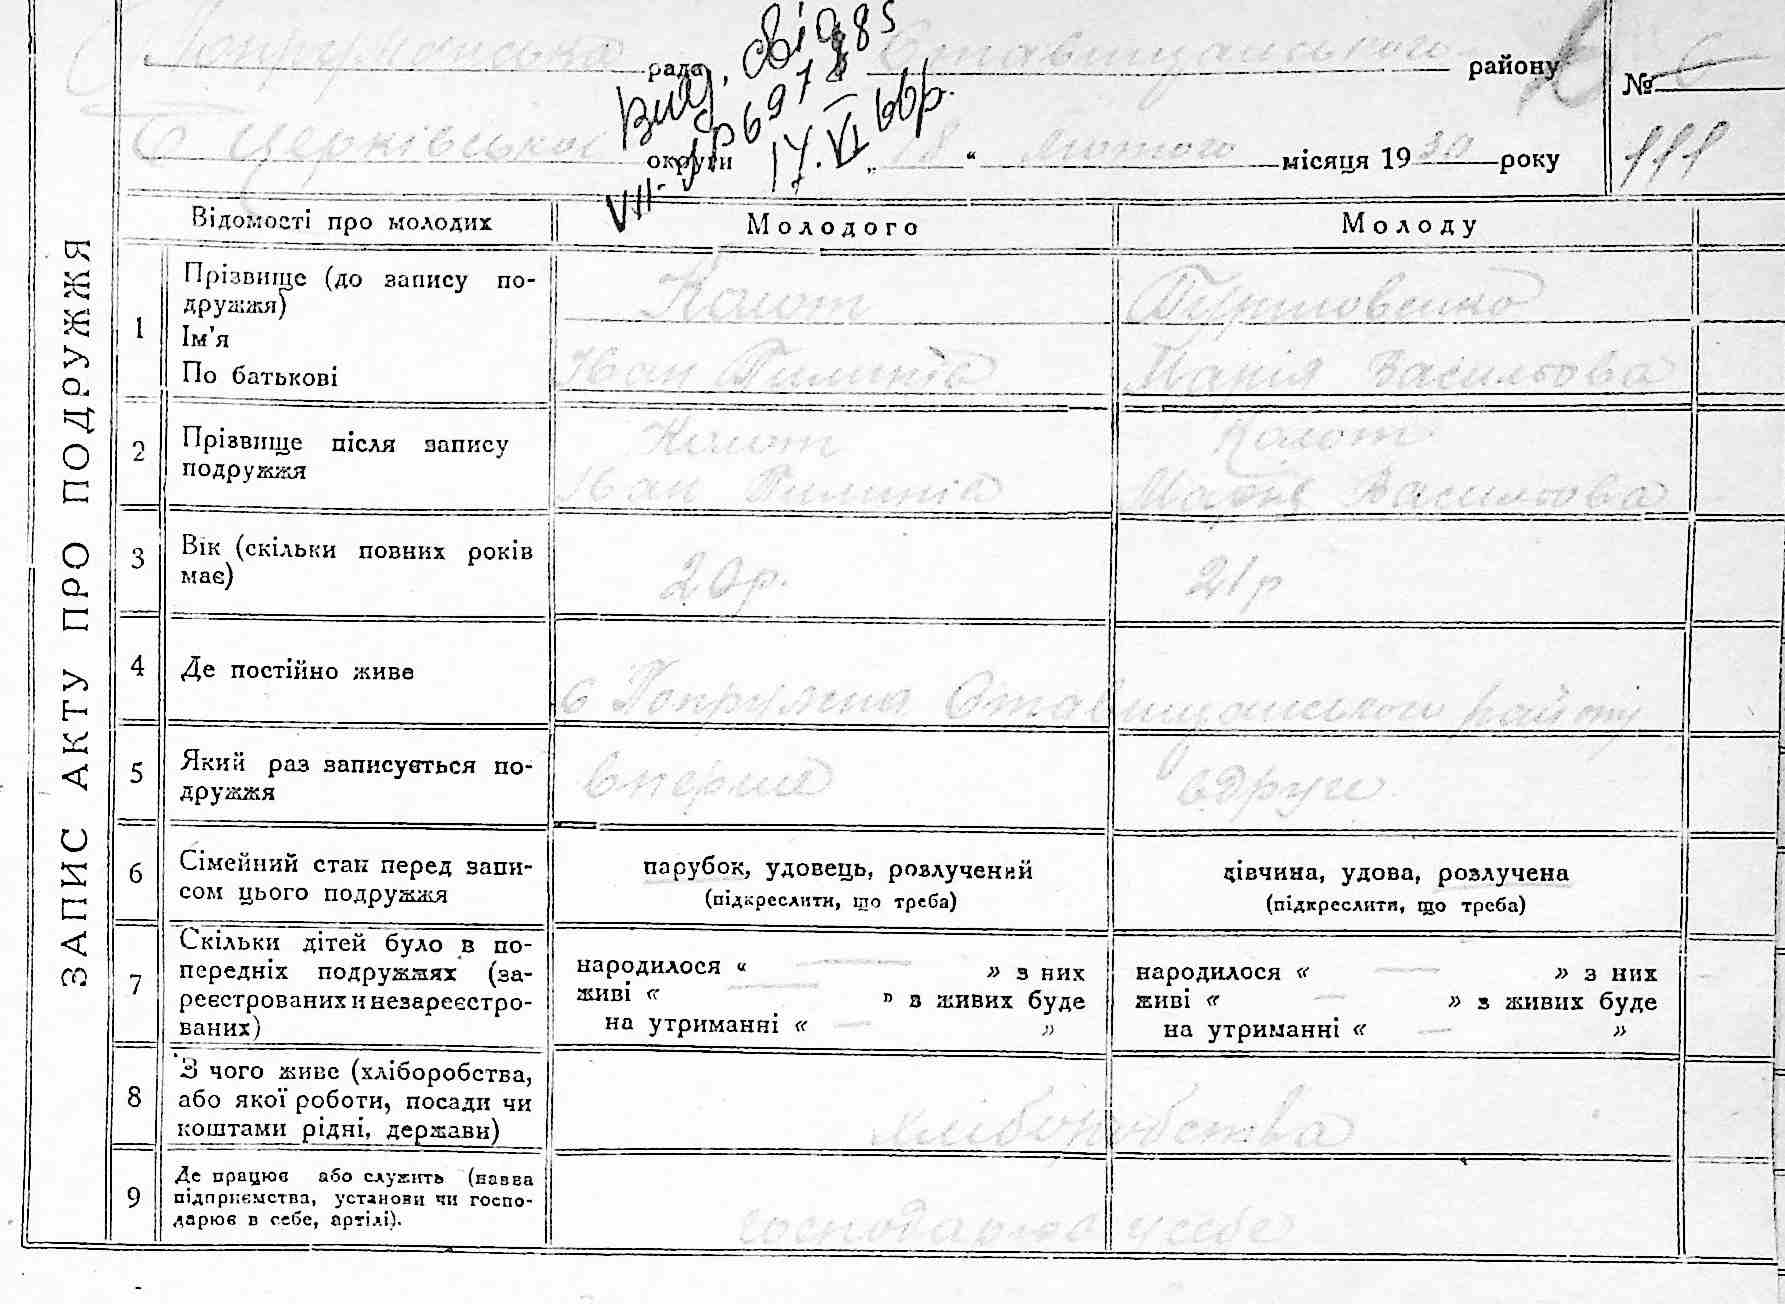 рада Ставищанського району № 6
Вид. свід
Б Церківської округи „18“ лютого місяця 1930 року 111
17.VI 66р.
ЗАПИС АКТУ ПРО ПОДРУЖЖЯ
Відомості про молодих Молодого Молоду
1 Прізвище (до запису по-
дружжя)
Ім'я
По батькові
Колот
Іван Пилипів
Василева
2 Прізвище після запису
подружжя
Колот Колот
Іван Пилипів Марія Василева
3 Вік (скільки повних років
має)
20р. 21р
4 Де постійно живе
с Попружна Ставищанського району
5 Який раз записується по-
дружжя
вперше вдруге
6 Сімейний стан перед запи-
сом цього подружжя
парубок, удовець, розлучений
(підкреслити, що треба)
дівчина, удова, розлучена
(підкреслити, що треба)
7 Скільки дітей було в по-
передніх подружжях (за-
реєстрованих и незареєстро-
ваних)
народилося « — » з них
живі « — » з живих буде
на утриманні « — »
народилося « — » з них
живі « — » з живих буде
на утриманні « — »
8 З чого живе (хліборобства,
або якої роботи, посади чи
коштами рідні, держави)
хліборобства
9 Де працює або служить (назва
підприємства, установи чи госпо-
дарює в себе, артілі).
господарює у себе